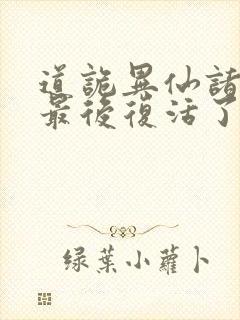 道詭異仙諸
最後復活了
綠葉小蘿卜